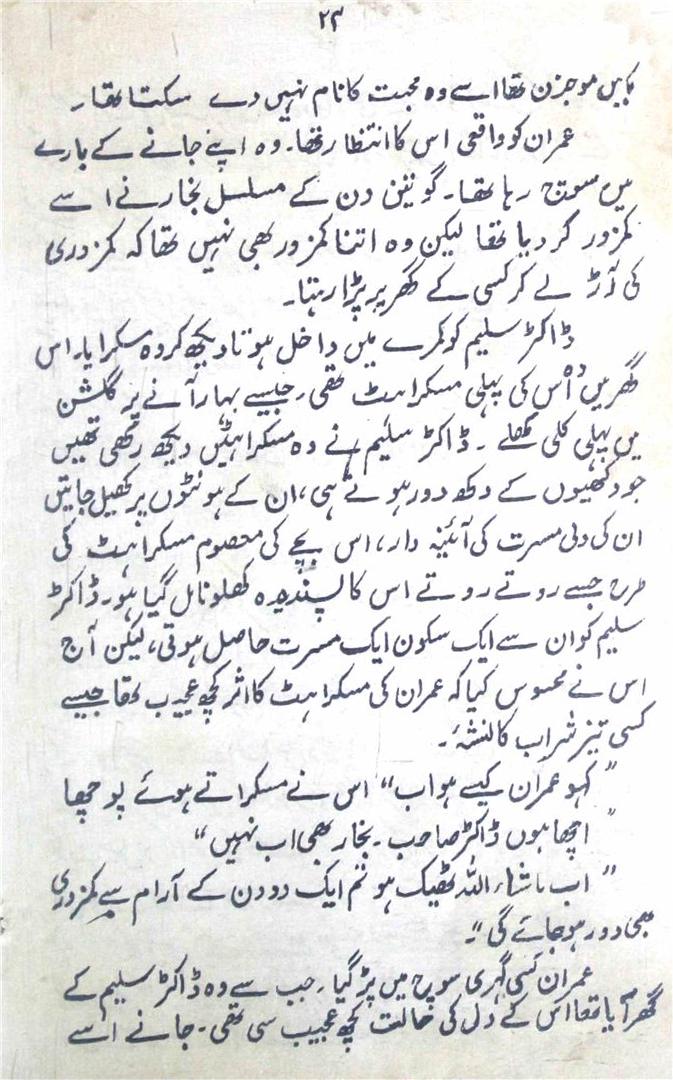 ۲۳
میں موجزن تھا اسے وہ محبت کا نام نہیں دے سکتا تھا۔
عمران کو واقعی اس کا انتظار تھا۔ وہ اپنے جانے کے بارے
میں سوچ رہا تھا۔ گو تین دن کے مسلسل بخار نے اسے
کمزور کر دیا تھا لیکن وہ اتنا کمزور بھی نہیں تھا کہ کمزوری
کی آڑ لے کر کسی کے گھر پر پڑا رہتا۔
ڈاکٹر سلیم کو کمرے میں داخل ہوتا دیکھ کر وہ مسکرایا۔ اس
گھر میں اُس کی پہلی مسکراہٹ تھی۔ جیسے بہار آنے پر گلشن
میں پہلی کلی کھلے ۔ ڈاکٹر سلیم نے وہ مسکراہٹیں دیکھ رکھی تھیں
جو دکھیوں کے دکھ دور ہوتے ہی، ان کے ہونٹوں پر کھیل جاتیں
ان کی دلی مسرت کی آئینہ دار، اس بچے کی معصوم مسکراہٹ کی
طرح جسے روتے روتے اس کا پسندیدہ کھلونا مل گیا ہو۔ ڈاکٹر
سلیم کو ان سے ایک سکون ایک مسرت حاصل ہوتی، لیکن آج
اس نے محسوس کیا کہ عمران کی مسکراہٹ کا اثر کچھ عجیب تھا جیسے
کسی تیز شراب کا نشہ ۔
" کہو عمران کیسے ہو اب " اس نے مسکراتے ہوئے پوچھا
" اچھا ہوں ڈاکٹر صاحب ۔ بخار بھی اب نہیں "
" اب ماشاء اللہ ٹھیک ہو تم ایک دو دن کے آرام سے کمزوری
بھی دور ہو جائے گی "۔
عمران کسی گہری سوچ میں پڑ گیا۔ جب سے وہ ڈاکٹر سلیم کے
گھر آیا تھا اس کے دل کی حالت کچھ عجیب سی تھی ۔ جانے اسے